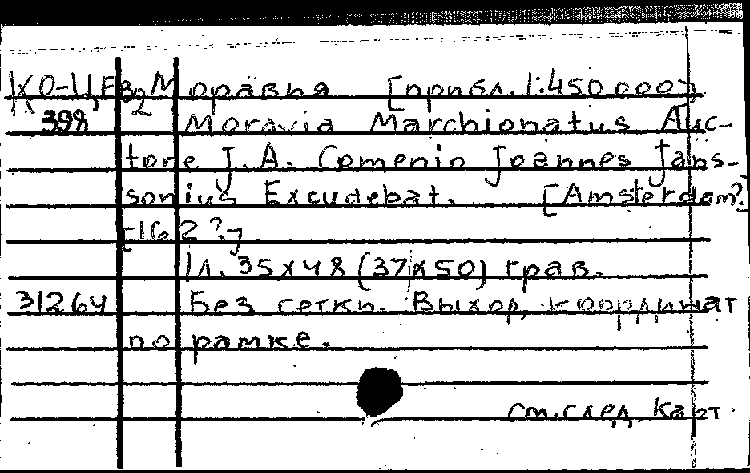 КО-Ц,Ев2 Моравия [прибл. 1:450 000]
398 Moravia Marchionatus Auc-
tore J. A. Comenio Joannes Jans-
sonius Excudebat. [Amsterdam?]
[162?]
1 л. 35x48 (37x50) грав.
31264 Без сетки. Выход. координат
по рамке.
см. след. карт.